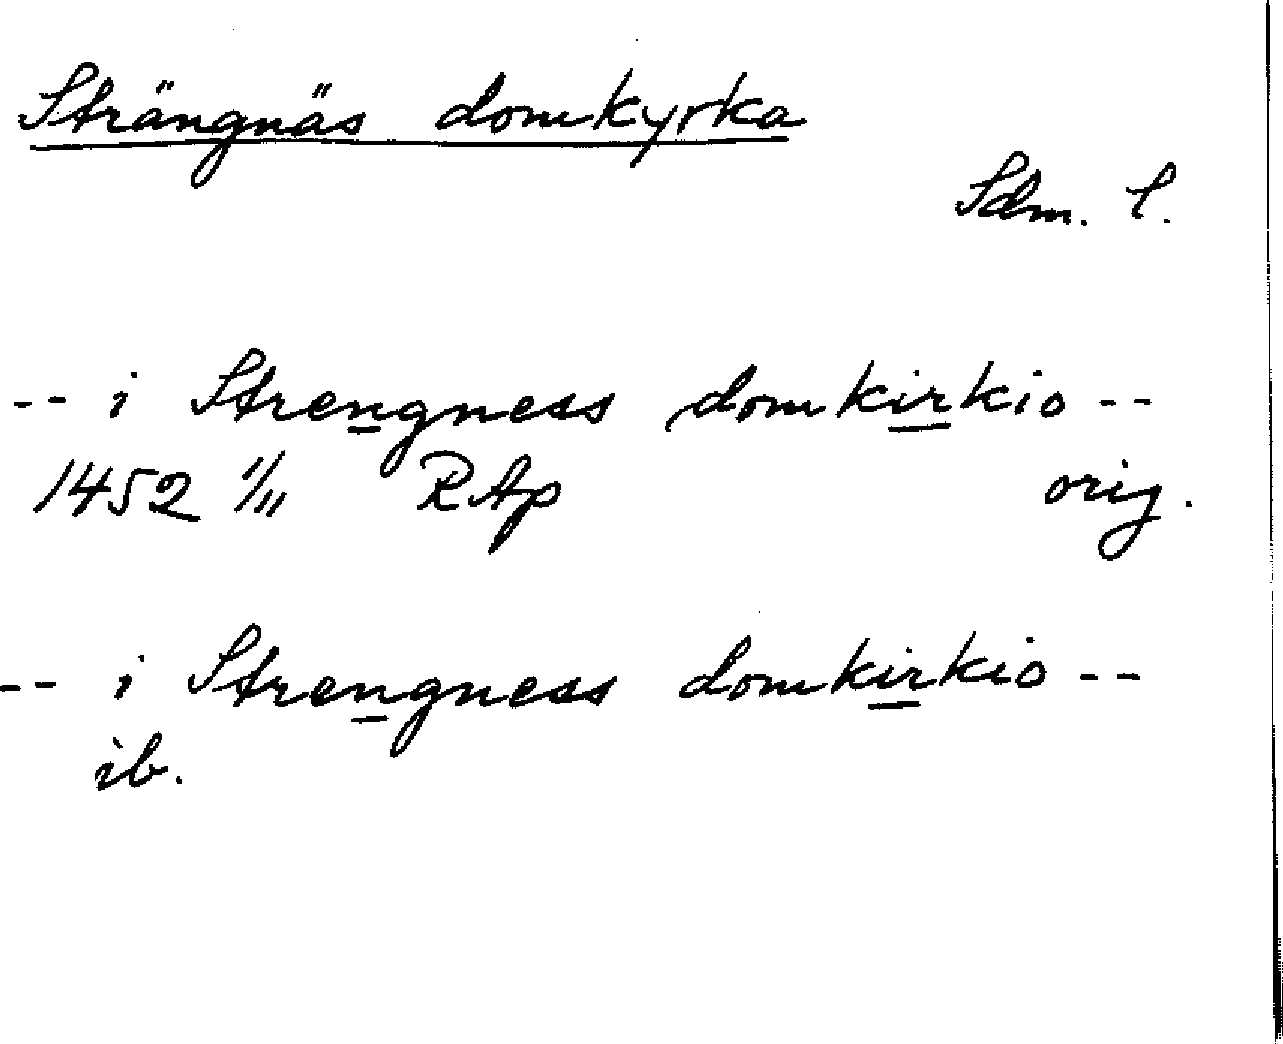 Strängnäs domkyrka
Sdm. l.
-- i Strengness domkirkio --
1452 1/11 RAp orig.
-- i Strengness domkirkio --
ib.